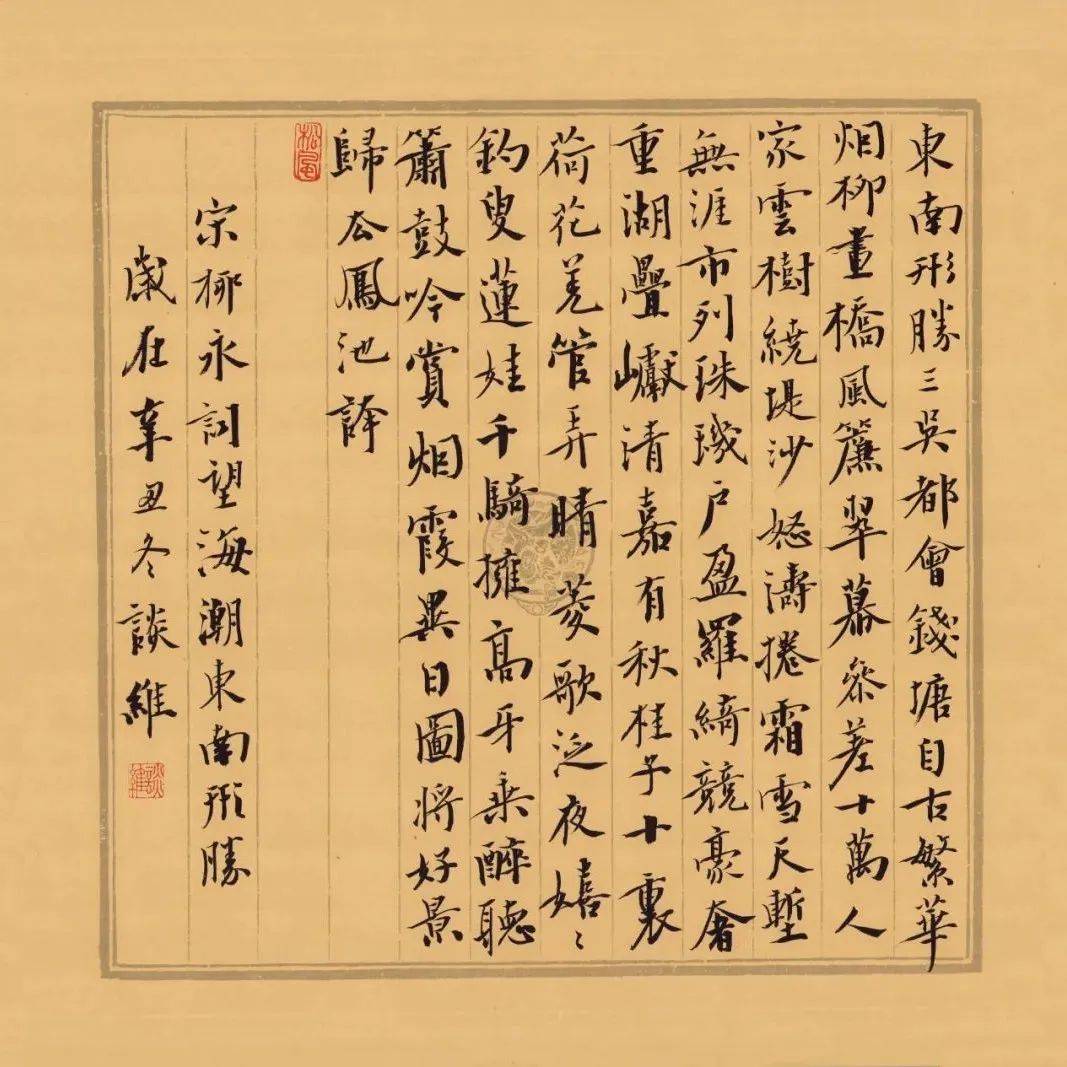 東南形勝三吳都會錢塘自古繁華
烟柳畫橋風簾翠幕參差十萬人
家雲樹繞堤沙怒濤捲霜雪天塹
無涯市列珠璣户盈羅綺競豪奢
重湖疊巘清嘉有秋桂子十裏
荷花羌管弄晴菱歌泛夜嬉〻
釣叟蓮娃千騎擁高牙乘醉聽
簫鼓吟賞烟霞異日圖將好景
歸去鳳池誇
松風
宋柳永詞望海潮東南形勝
歲在辛丑冬談維
談維